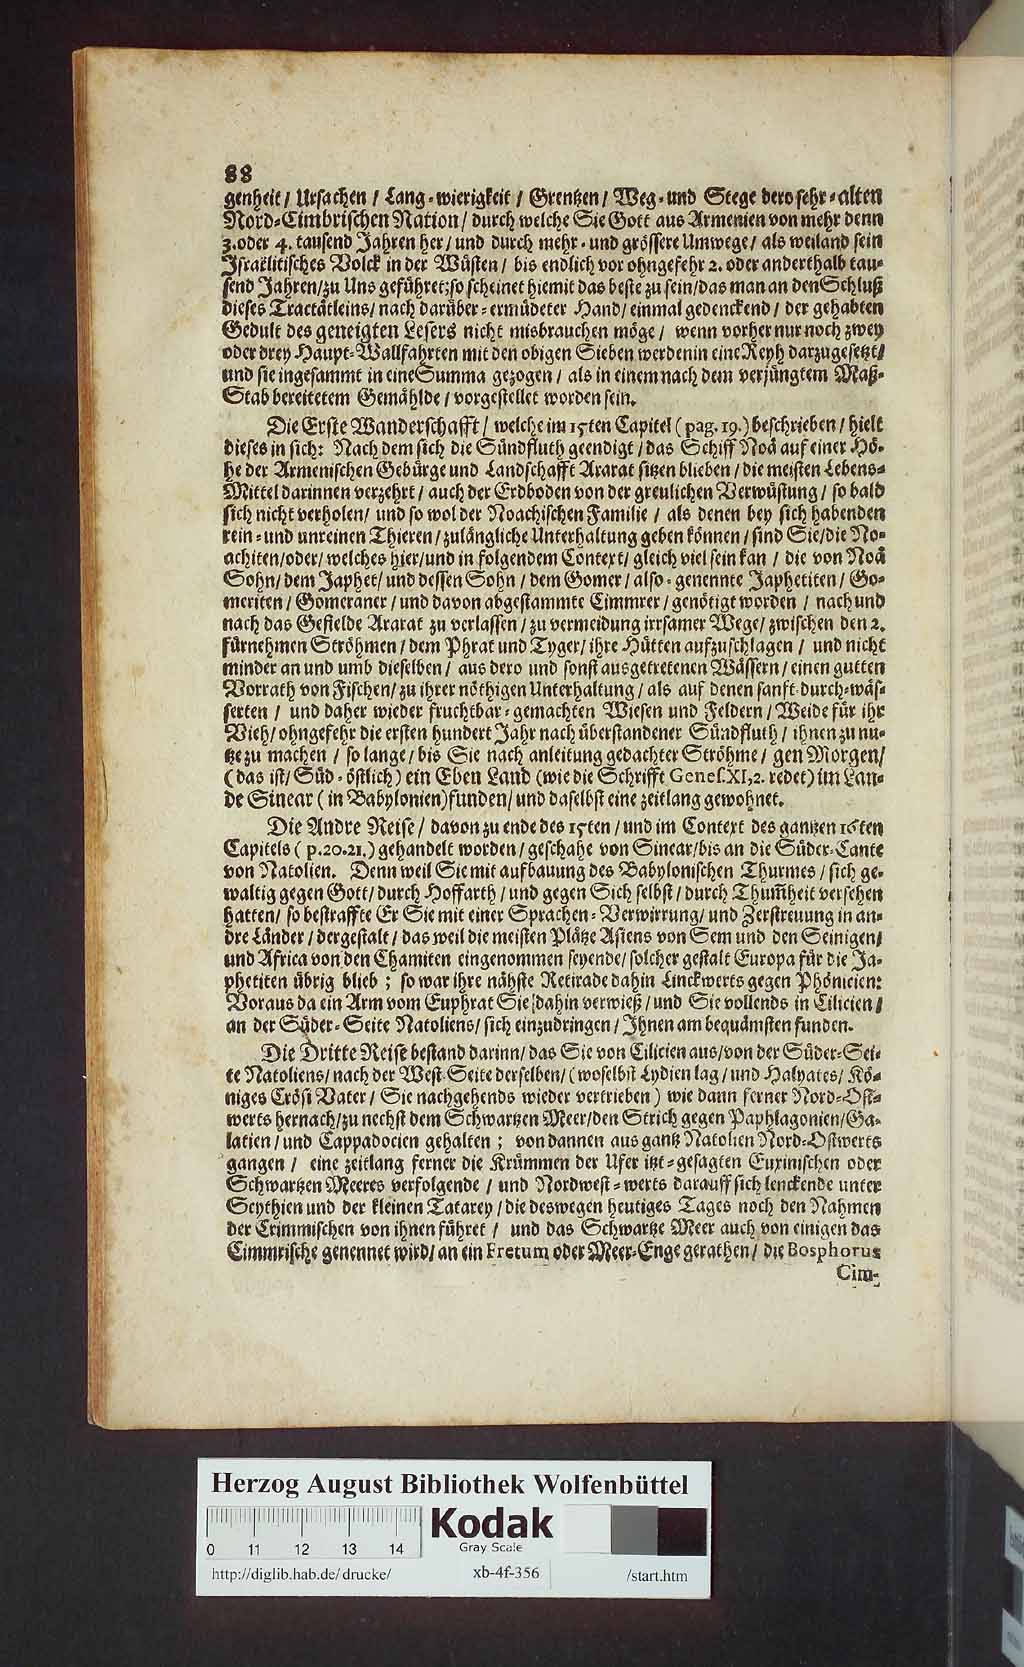 88
genheit / Ursachen / Lang-wierigkeit / Grentzen / Weg-und Stege dero sehr-alten
Nord-Cimbrischen Nation / durch welche Sie Gott aus Armenien von mehr denn
3. oder 4. tausend Jahren her / und durch mehr-und grössere Umwege / als weiland sein
Israëlitisches Volck in der Wüsten / bis endlich vor ohngefehr 2. oder anderthalb tau-
send Jahren / zu Uns geführet: so scheinet hiemit das beste zu sein / das man an den Schluß
dieses Tractätleins / nach darüber-ermüdeter Hand / einmal gedenckend / der gehabten
Gedult des geneigten Lesers nicht misbrauchen möge / wenn vorher nur noch zwey
oder drey Haupt-Wallfahrten mit den obigen Sieben werden in eine Reyh darzugesetzt /
und sie ingesammt in eine Summa gezogen / als in einem nach dem verjüngtem Maß-
Stab bereitetem Gemählde / vorgestellet worden sein.
Die Erste Wanderschafft / welche im 15ten Capitel ( pag. 19. ) beschrieben / hielt
dieses in sich: Nach dem sich die Sündfluth geendigt / das Schiff Noä auf einer Hö-
he der Armenischen Gebürge und Landschafft Ararat sitzen blieben / die meisten Lebens-
Mittel darinnen verzehrt / auch der Erdboden von der greulichen Verwüstung / so bald
sich nicht verholen / und so wol der Noachischen Familie / als denen bey sich habenden
rein-und unreinen Thieren / zulängliche Unterhaltung geben können / sind Sie / die No-
achiten / oder / welches hier / und in folgendem Context / gleich viel sein kan / die von Noä
Sohn / dem Japhet / und dessen Sohn / dem Gomer / also-genennte Japhetiten / Go-
meriten / Gomeraner / und davon abgestammte Cimmrer / genötigt worden / nach und
nach das Gefielde Ararat zu verlassen / zu vermeidung irrsamer Wege / zwischen den 2.
fürnehmen Ströhmen / dem Phrat und Tyger / ihre Hütten aufzuschlagen / und nicht
minder an und umb dieselben / aus dero und sonst ausgetretenen Wässern / einen gutten
Vorrath von Fischen / zu ihrer nöthigen Unterhaltung / als auf denen sanft-durch-wäs-
serten / und daher wieder fruchtbar-gemachten Wiesen und Feldern / Weide für ihr
Vieh / ohngefehr die ersten hundert Jahr nach überstandener Sündfluth / ihnen zu nu-
tze zu machen / so lange / bis Sie nach anleitung gedachter Ströhme / gen Morgen /
( das ist / Süd-östlich ) ein Eben Land (wie die Schrifft Genes. XI, 2. redet) im Lan-
de Sinear ( in Babylonien) funden / und daselbst eine zeitlang gewohnet.
Die Andre Reise / davon zu ende des 15ten / und im Context des gantzen 16ten
Capitels ( p. 20. 21. ) gehandelt worden / geschahe von Sinear / bis an die Süder-Cante
von Natolien. Denn weil Sie mit aufbauung des Babylonischen Thurmes / sich ge-
waltig gegen Gott / durch Hoffarth / und gegen Sich selbst / durch Thum̄heit versehen
hatten / so bestraffte Er Sie mit einer Sprachen-Verwirrung / und Zerstreuung in an-
dre Länder / dergestalt / das weil die meisten Plätze Asiens von Sem und den Seinigen /
und Africa von den Chamiten eingenommen seyende / solcher gestalt Europa für die Ja-
phetiten übrig blieb ; so war ihre nähste Retirade dahin Linckwerts gegen Phönicien:
Voraus da ein Arm vom Euphrat Sie dahin verwieß / und Sie vollends in Cilicien /
an der Süder-Seite Natoliens / sich einzudringen / Ihnen am bequämsten funden.
Die Dritte Reise bestand darinn / das Sie von Cilicien aus / von der Süder-Sei-
te Natoliens / nach der West-Seite derselben / (woselbst Lydien lag / und Halyates / Kö-
niges Crösi Vater / Sie nachgehends wieder vertrieben) wie dann ferner Nord-Ost-
werts hernach / zu nechst dem Schwartzen Meer / den Strich gegen Paphlagonien / Ga-
latien / und Cappadocien gehalten ; von dannen aus gantz Natolien Nord-Ostwerts
gangen / eine zeitlang ferner die Krümmen der Ufer itzt-gesagten Euxinischen oder
Schwartzen Meeres verfolgende / und Nordwest-werts darauff sich lenckende unter
Scythien und der kleinen Tatarey / die deswegen heutiges Tages noch den Nahmen
der Crimmischen von ihnen führet / und das Schwartze Meer auch von einigen das
Cimmrische genennet wird / an ein Fretum oder Meer-Enge gerathen / die Bosphorus
Cim-
Herzog August Bibliothek Wolfenbüttel
0 11 12 13 14
Kodak
Gray Scale
http://diglib.hab.de/drucke/ xb-4f-356 /start.htm